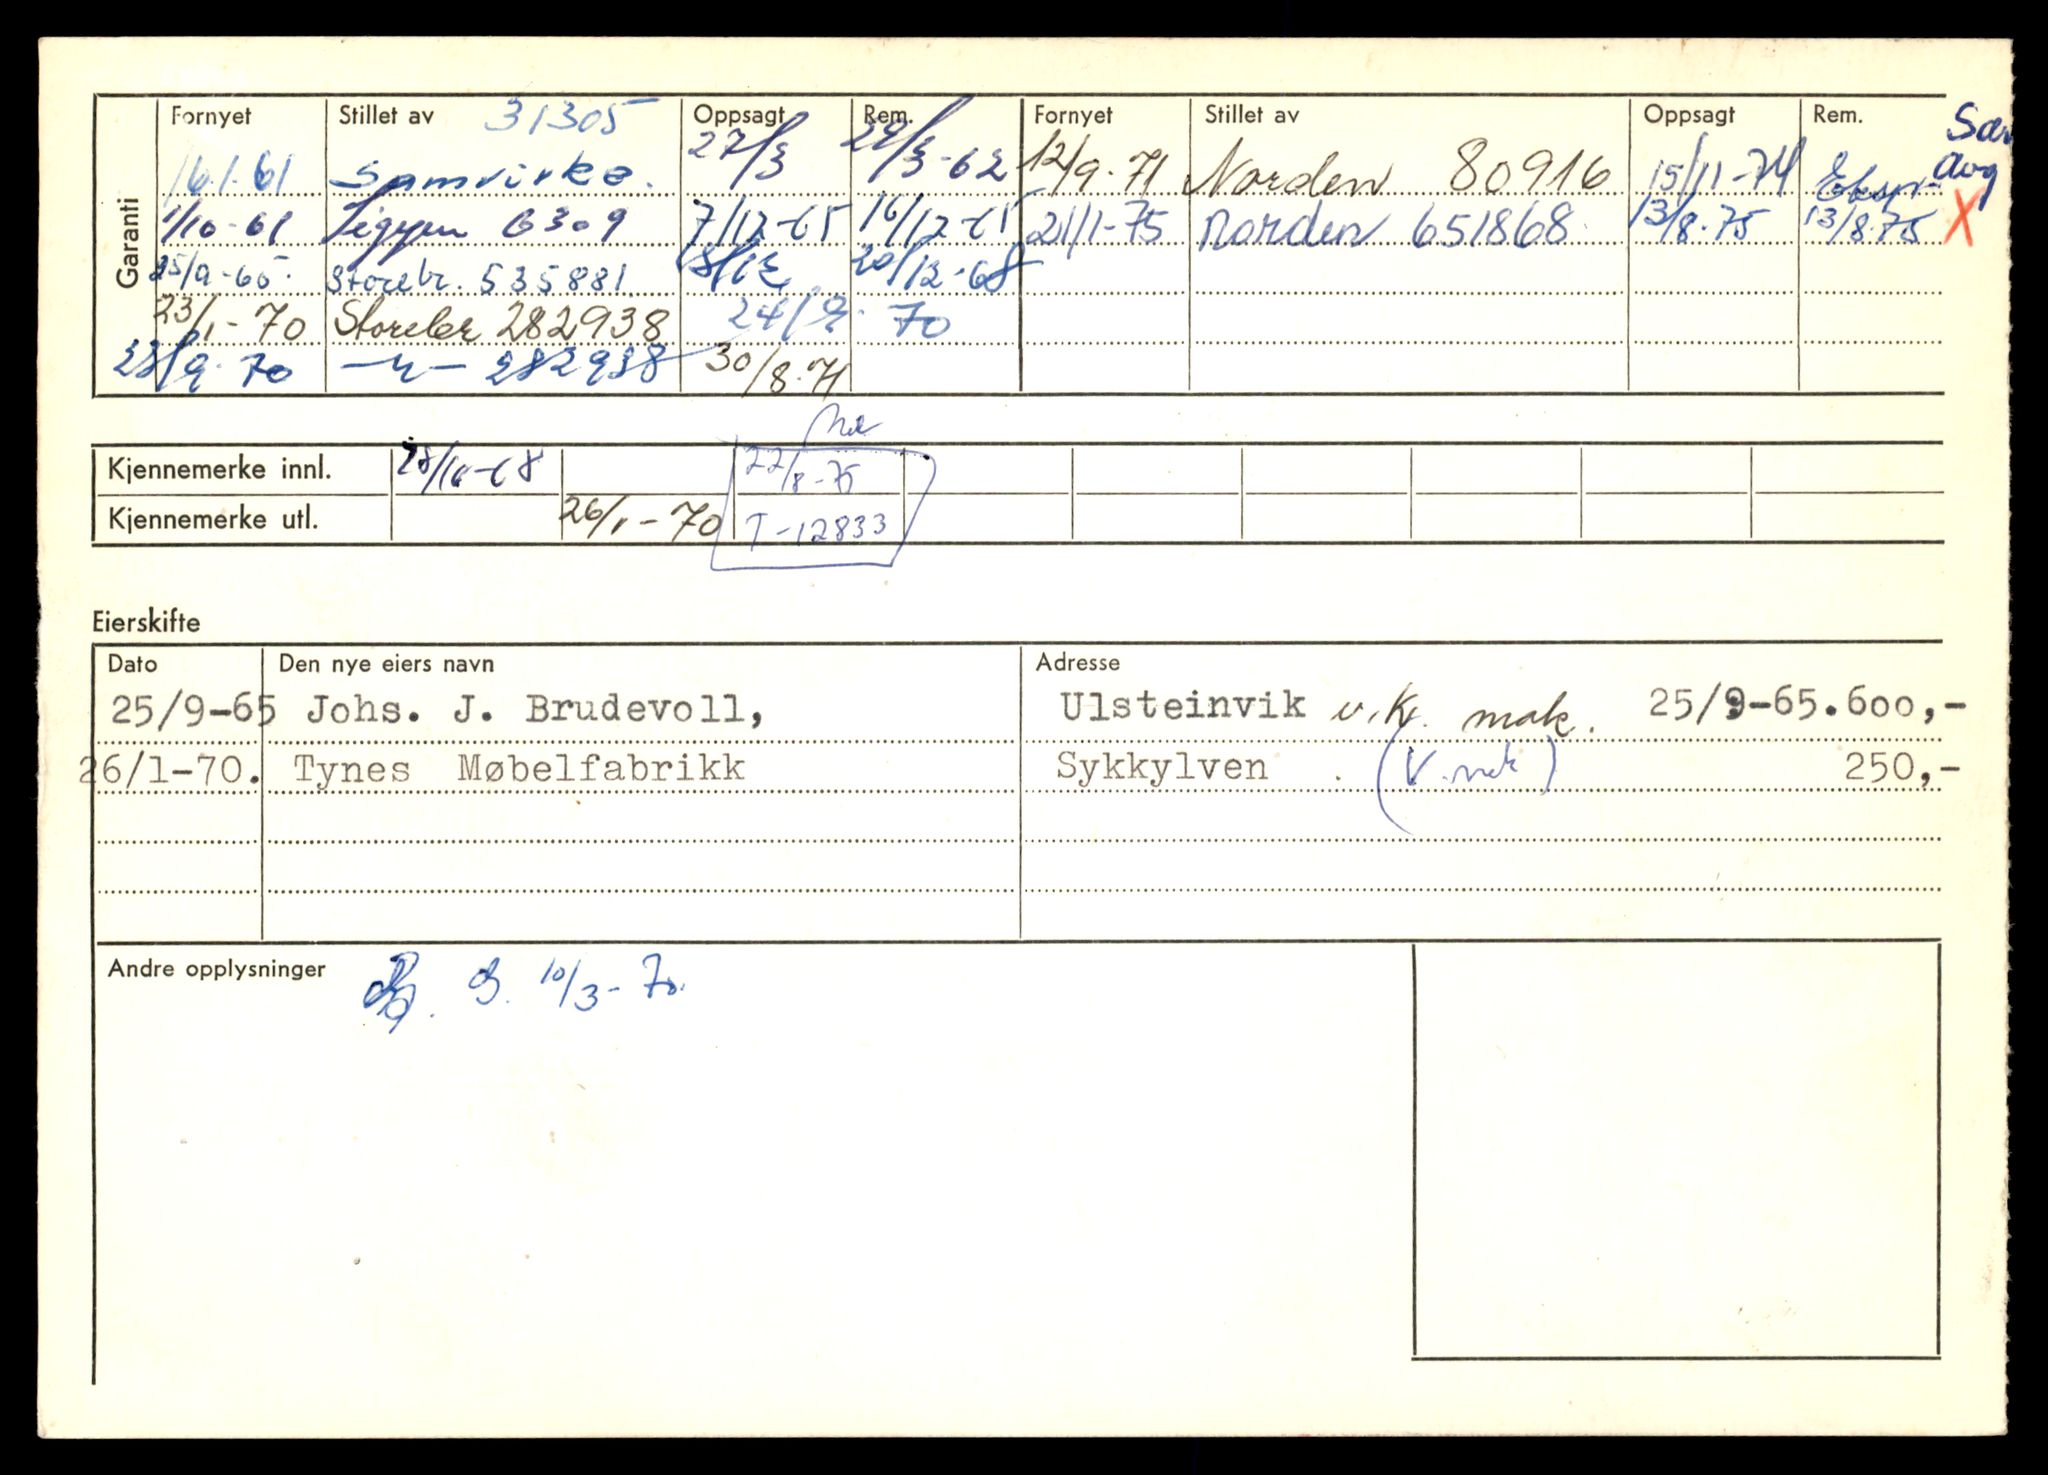 Garanti
Fornyet Stillet av 31305 Oppsagt Rem. Fornyet Stillet av Oppsagt Rem.
16.1.61 Samvirke. 27/3 29/3-62 12/9.71 Norden 80916 15/11-74
1/10-61 6309 7/12-65 16/12-65 21/1-75 Norden 651868 13/8.75 13/8.75 X
25/9-65. Storebr. 535881 20/12-68
23/1-70 Storebr 282938 24/9. 70
23/9.70 —"— 282938 30/8.71
Kjennemerke innl. 28/10-68 22/8-75
Kjennemerke utl. 26/1-70 T-12833
Eierskifte
Dato Den nye eiers navn Adresse
25/9-65 Johs. J. Brudevoll, Ulsteinvik 25/9-65.600,-
26/1-70. Tynes Møbelfabrikk Sykkylven . 250,-
Andre opplysninger 10/3-70.